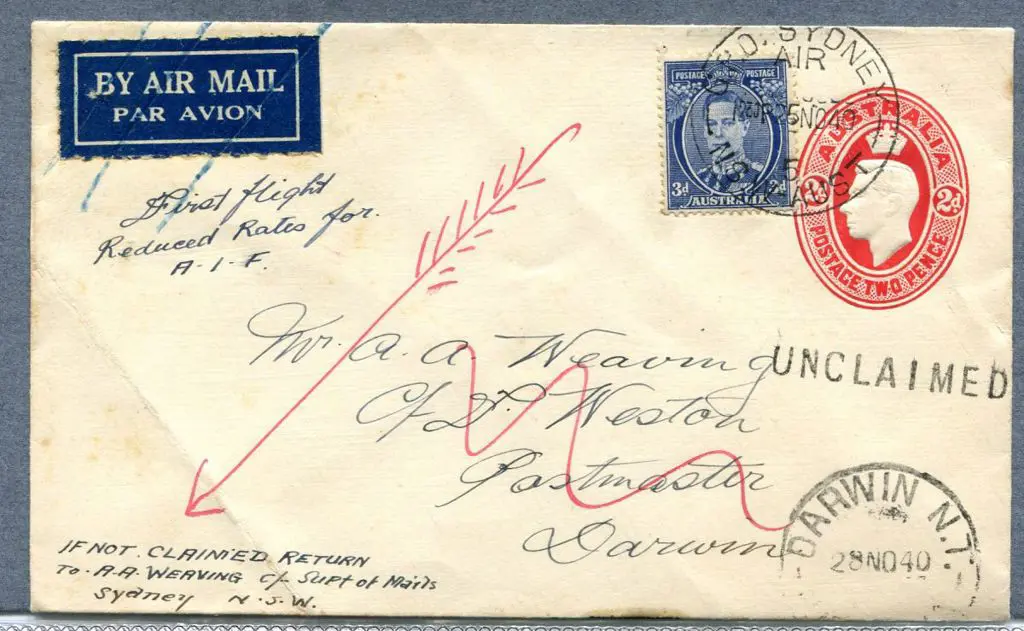 BY AIR MAIL
PAR AVION
First flight
Reduced Rates for
A-I-F.
POSTAGE POSTAGE
3d
AUSTRALIA
SYDNEY
AIR
25NO40
5
AUST
AUSTRALIA
2d 2d
POSTAGE TWO PENCE
Mr. A. A. Weaving
C/- Weston
Postmaster
Darwin
UNCLAIMED
DARWIN N.T.
28NO40
IF NOT CLAIMED RETURN
To. A.A. WEAVING C/- Supt of Mails
Sydney N.S.W.